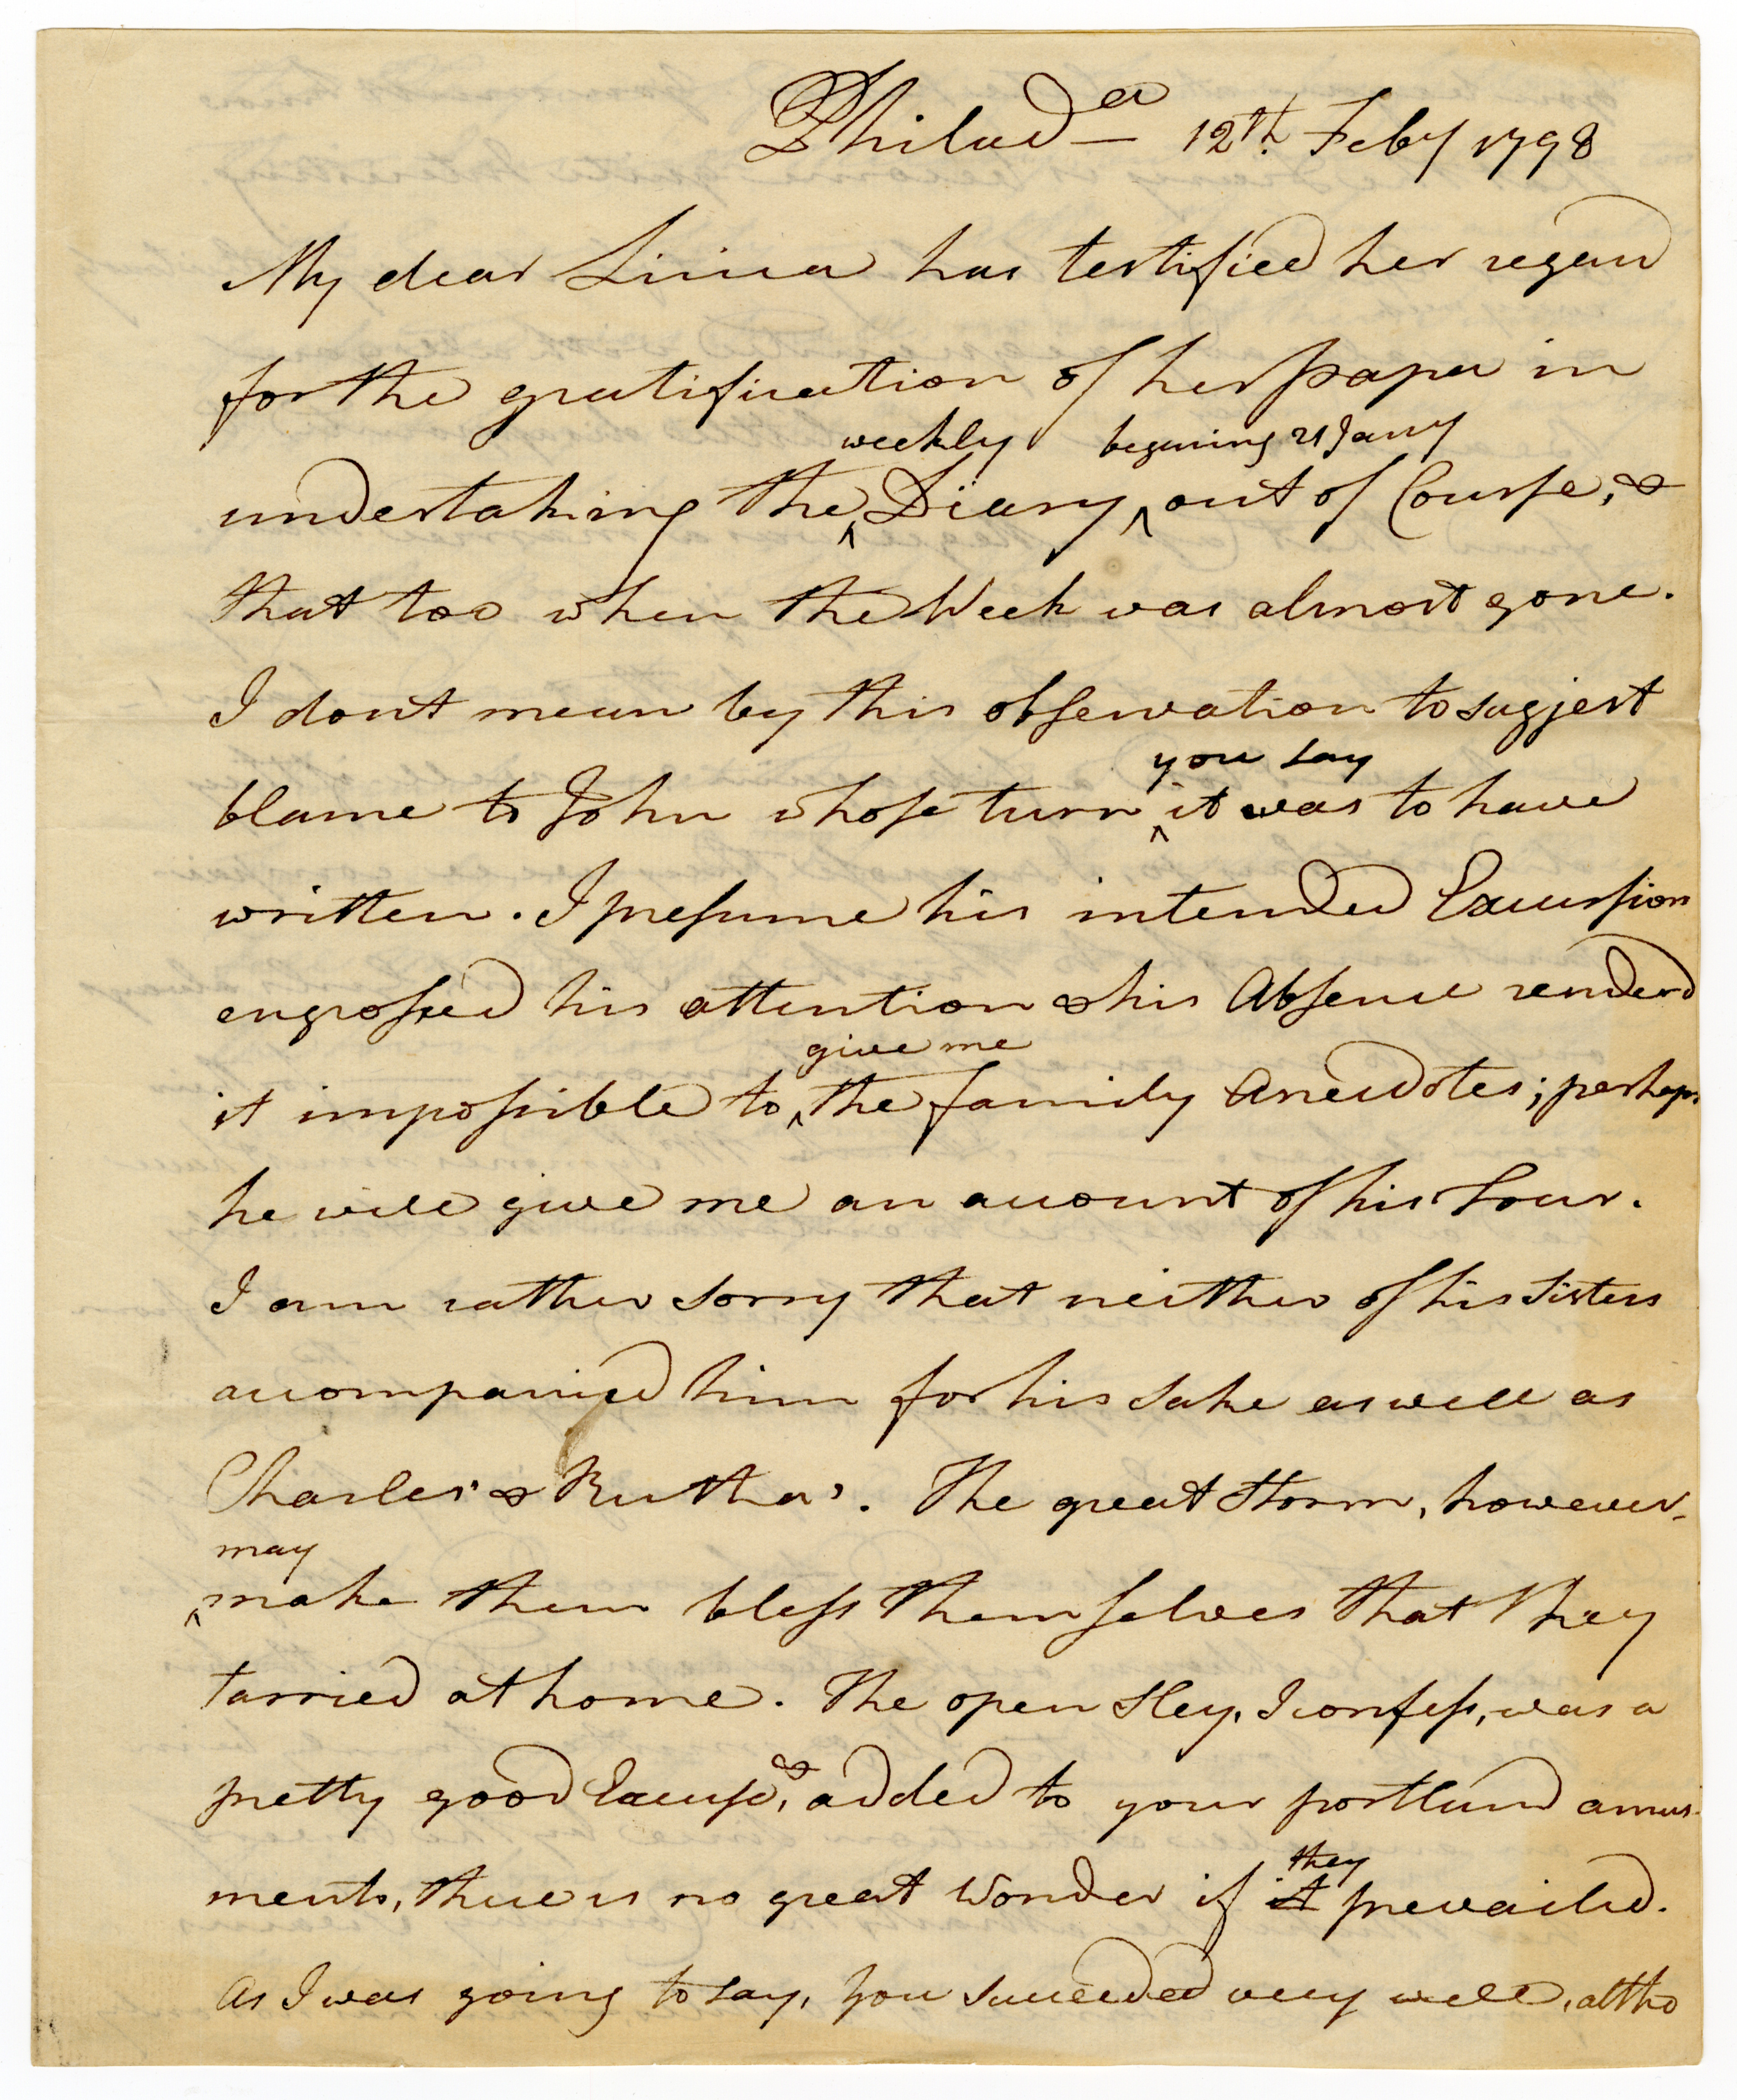 Philad^a 12th. Feby 1798
My dear Linia has testified her regard
for the gratification of her papa in
weekly begining 21 Jany
undertaking the ^ Diary, ^ out of Course, &
that too when the Week was almost gone.
I dont mean by this observation to suggest
you say
blame to John whose turn ^ it was to have
written. I presume his intended Excursion
engrossed his attention & his Absence renderd
give me
it impossible to ^ the family Anecdotes; perhaps
he will give me an account of his Tour.
I am rather sorry that neither of his Sisters
accompanied him for his sake as well as
Charles's & Rutha's. The great storm, however,
may
^ make them bless themselves that they
tarried at home. The open Sley, I confess, was a
pretty good Excuse, & added to your portland amus-
ments, there is no great Wonder if
they
it prevailed.
As I was going to say, You succeeded very well, altho